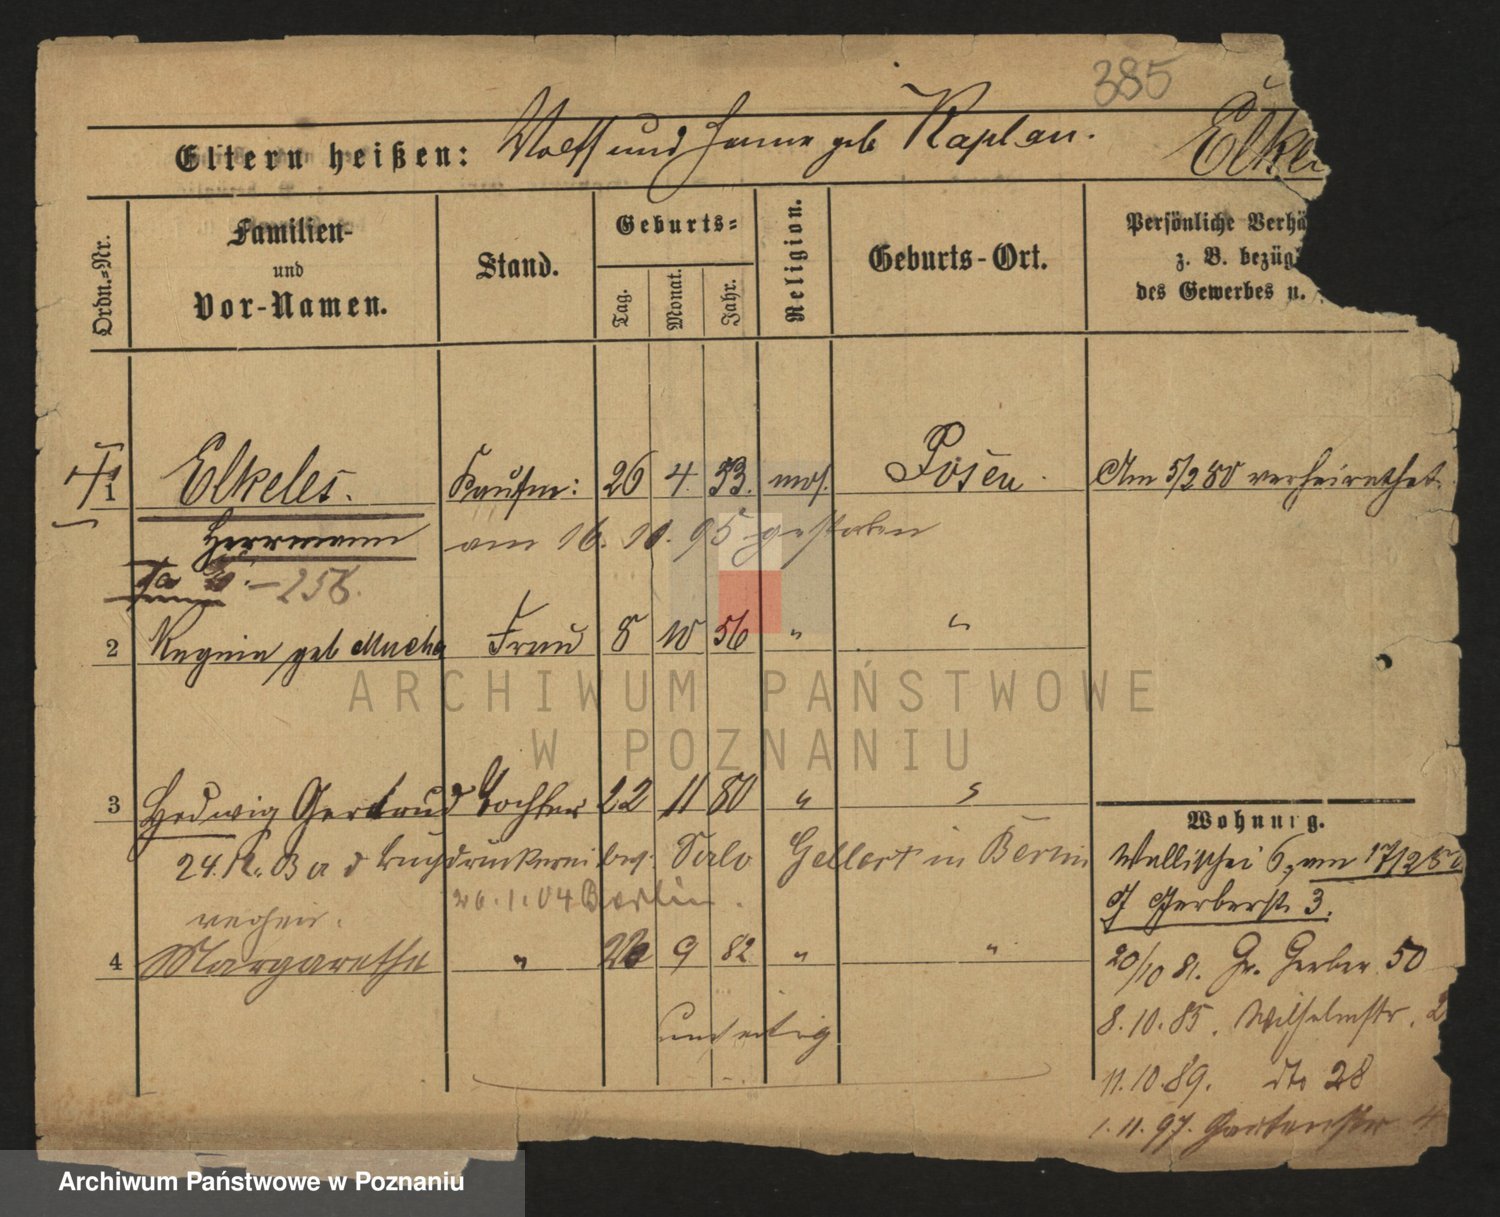 385
Eltern heißen: Wolff und Hanne geb Kaplan. Elke
Ordn.-Nr.
Familien- und Vor-Namen.
Stand.
Geburts-
Tag.
Monat.
Jahr.
Religion.
Geburts-Ort.
Persönliche Verhä
z. B. bezüg
des Gewerbes u.
1 Elkeles. Kaufm: 26 4. 53. mos. Posen. Am 5/2 80 verheirathet.
Herrmann am 16. 10. 95 gestorben
256.
2 geb Mucha Frau 8 10 56 " "
3 Hedwig Gertrud Tochter 22 11 80 " "
24. Buchdruckereibes. Salo Gellert in Berlin
26.1.04 Berlin.
verheir.
4 Margarethe " 9 82 " "
umseitig
Wohnung.
Wallischei 6, am 17/2 8
Gerberstr 3.
20/10 81. Gr. Gerber 50
8.10.85. Wilhelmstr. 2
11.10.89. dto 28
1.11.97. Gartenstr 4
ARCHIWUM PAŃSTWOWE
W POZNANIU
Archiwum Państwowe w Poznaniu